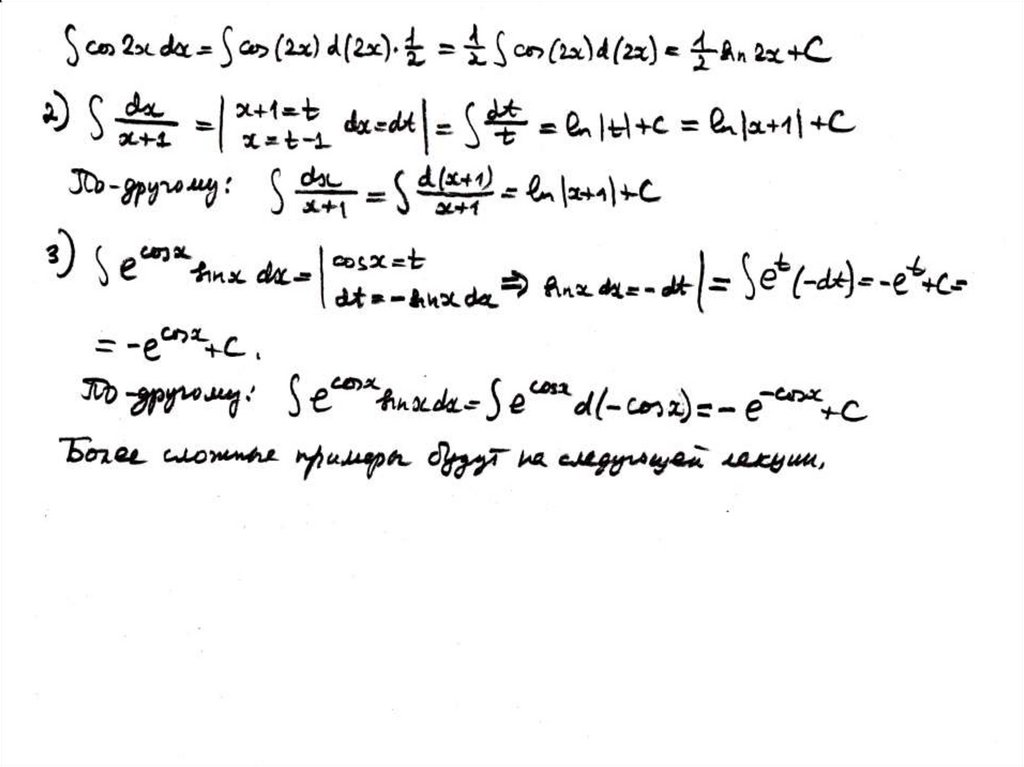 ∫ cos 2x dx = ∫ cos (2x) d (2x) · 1/2 = 1/2 ∫ cos (2x) d (2x) = 1/2 sin 2x + C
2) ∫ dx/(x+1) = | x+1 = t x = t-1 dx = dt | = ∫ dt/t = ln |t| + C = ln |x+1| + C
По-другому: ∫ dx/(x+1) = ∫ d(x+1)/(x+1) = ln |x+1| + C
3) ∫ e^cosx sin x dx = | cos x = t dt = - sin x dx ⇒ sin x dx = - dt | = ∫ e^t (-dt) = -e^t + C =
= -e^cosx + C.
По-другому: ∫ e^cosx sin x dx = ∫ e^cosx d(-cos x) = - e^-cosx + C
Более сложные примеры будут на следующей лекции.